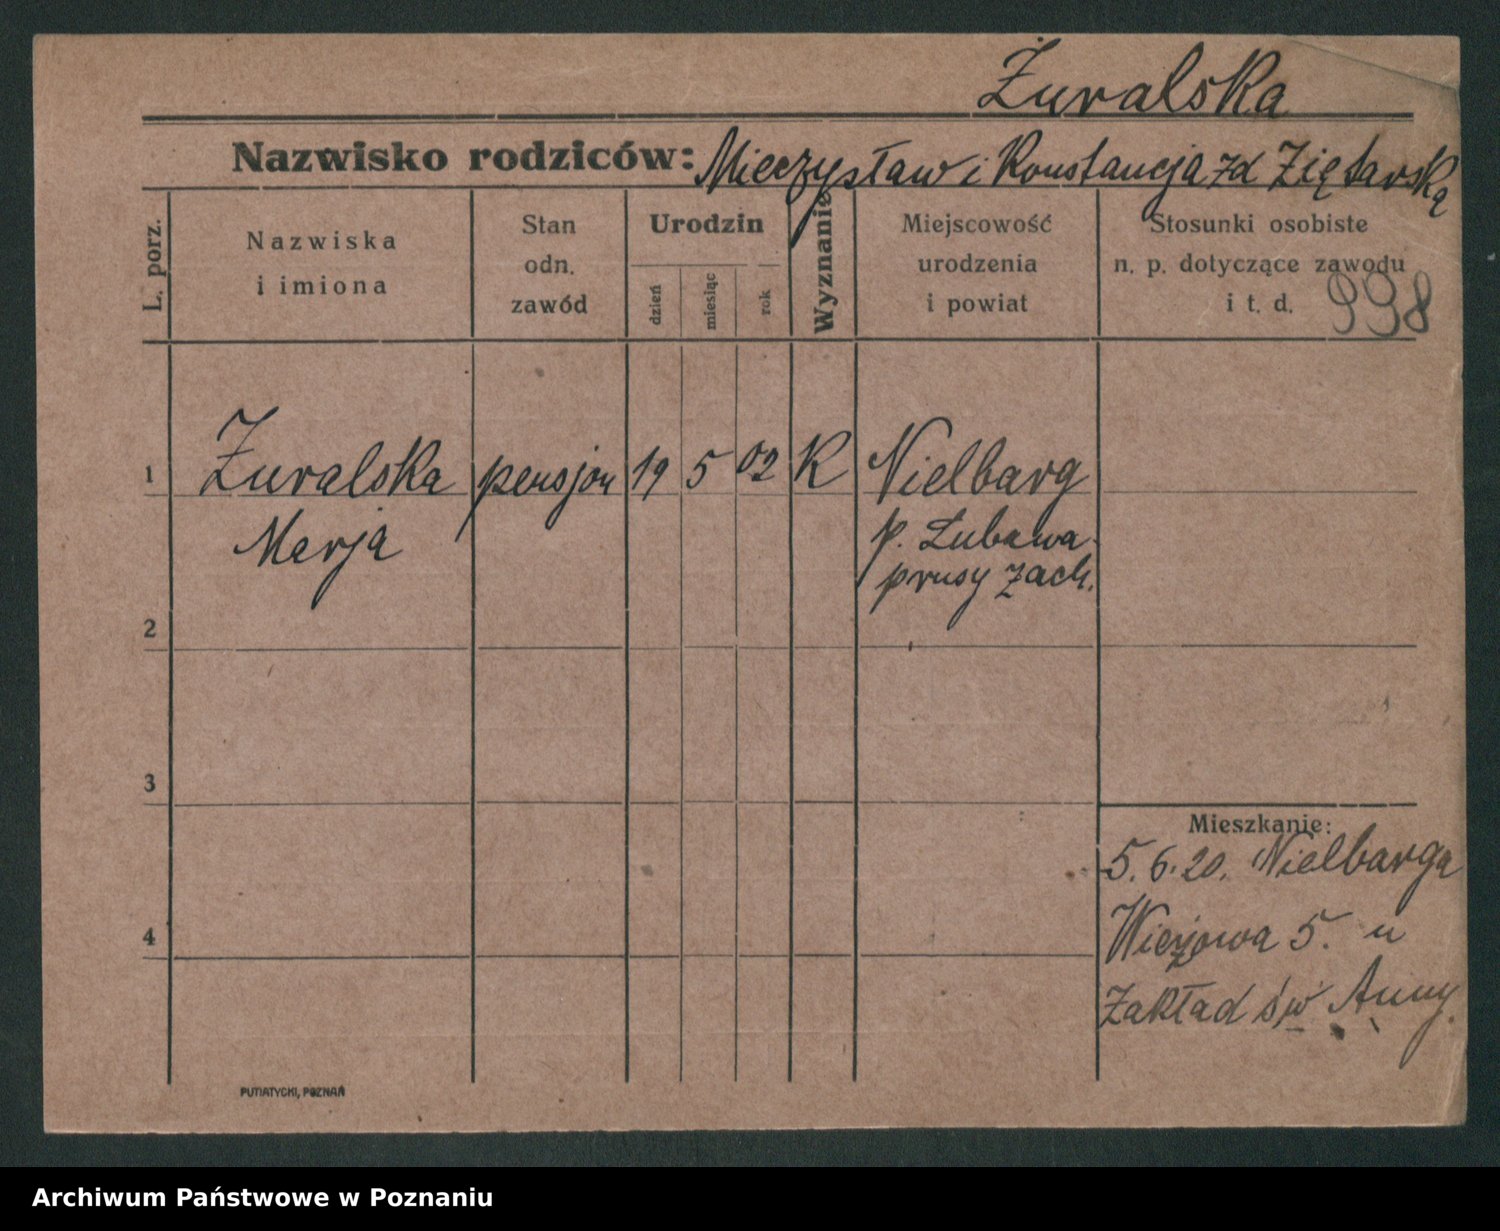 Żuralska
Nazwisko rodziców: Mieczysław i Konstancja zd Ziętarską
L. porz.
Nazwiska
i imiona
Stan
odn.
zawód
Urodzin
dzień
miesiąc
rok
Wyznanie
Miejscowość
urodzenia
i powiat
Stosunki osobiste
n. p. dotyczące zawodu
i t. d.
998
1 Żuralska pensjon 19 5 02 K Nielbarg
Marja p. Lubawa
prusy zach.
2
3
Mieszkanie:
5.6.20. Nielbarga
4
Wieżowa 5. u
Zakład św Anny.
PUTIATYCKI, POZNAŃ
Archiwum Państwowe w Poznaniu